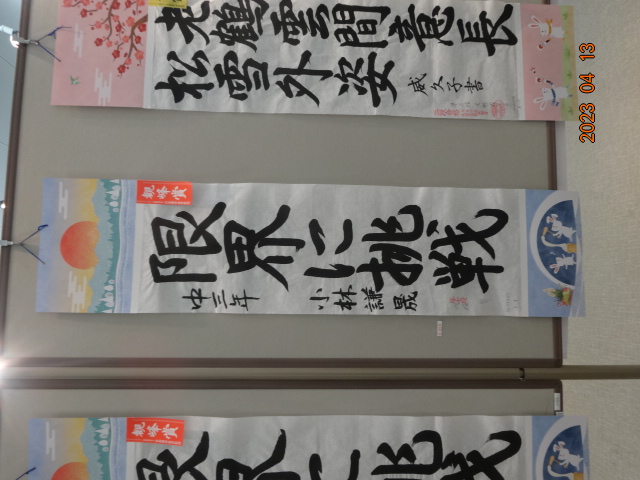 老鶴雲間意長
松雪外姿
威久子書
觀峰賞
限界に挑戦
中三年 小林謙晟
觀峰賞
限界に挑戦
2023 04 13